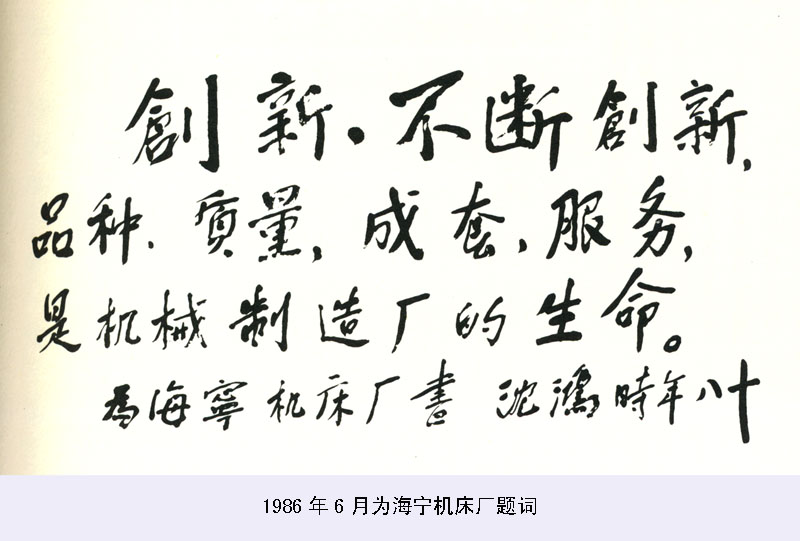 創新．不断創新，
品种、质量，成套，服务，
是机械制造厂的生命。
為海寧机床厂書 沈鴻時年八十
1986 年 6 月为海宁机床厂题词